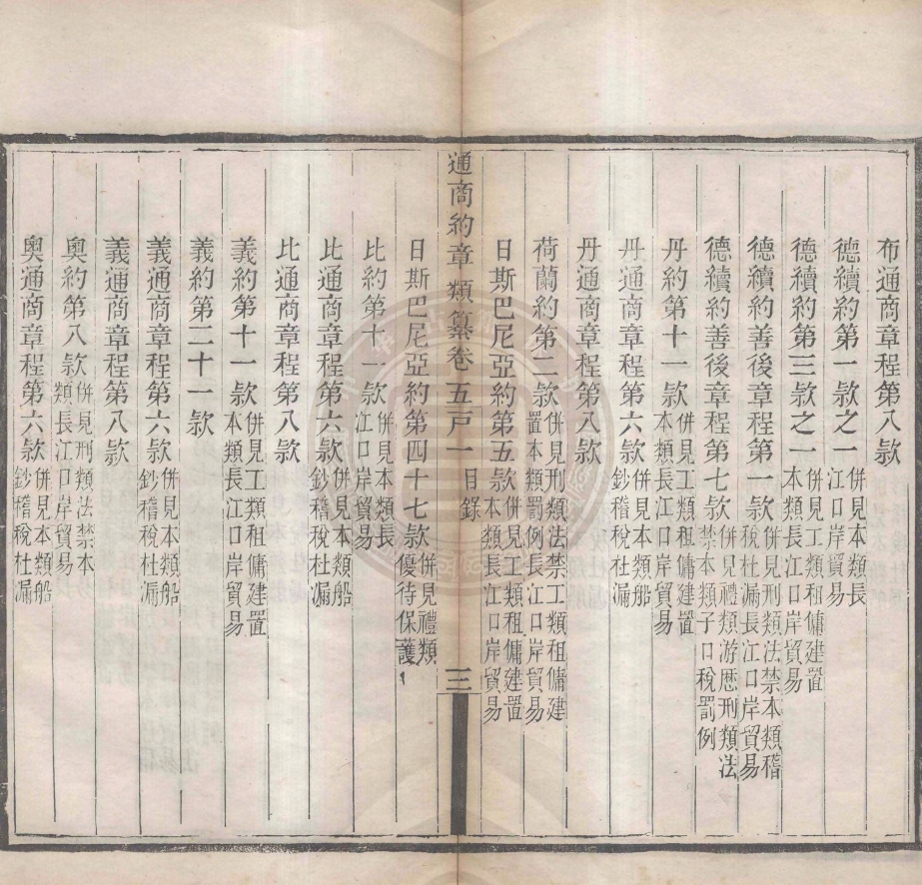 布通商章程第八款
德續約第一款之一併見本類長江口岸貿易
德續約第三款之一併見工類租傭建置本類長江口岸貿易
德續約善後章程第一款併見刑類法禁本類稽稅杜漏長江口岸貿易
德續約善後章程第七款併見禮類游歷刑類法禁本類子口稅罰例
丹約第十一款併見工類租傭建置本類長江口岸貿易
丹通商章程第六款併見本類船鈔稽稅杜漏
丹通商章程第八款
荷蘭約第二款併見刑類法禁工類租傭建置本類罰例長江口岸貿易
日斯巴尼亞約第五款併見工類租傭建置本類長江口岸貿易
通商約章類纂卷五戸一 目錄 三
日斯巴尼亞約第四十七款併見禮類優待保護
比約第十一款併見本類長江口岸貿易
比通商章程第六款併見本類船鈔稽稅杜漏
比通商章程第八款
義約第十一款併見工類租傭建置本類長江口岸貿易
義約第二十一款
義通商章程第六款併見本類船鈔稽稅杜漏
義通商章程第八款
奧約第八款併見刑類法禁本類長江口岸貿易
奧通商章程第六款併見本類船鈔稽稅杜漏